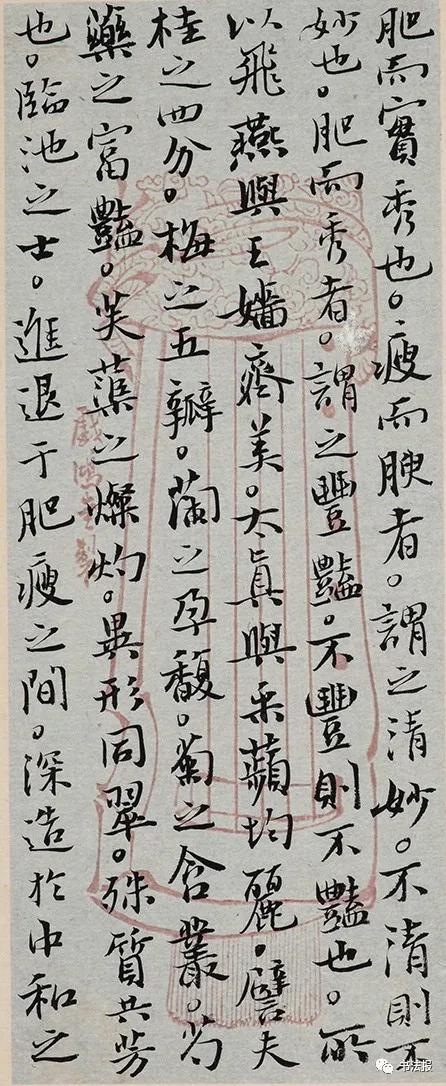 肥而實秀也。瘦而腴者。謂之清妙。不清則不
妙也。肥而秀者。謂之豐豔。不豐則不豔也。所
以飛燕與王嬙齊美。太真與采蘋均麗。譬夫
桂之四分。梅之五瓣。蘭之孕馥。菊之含叢。芍
藥之富豔。芙蕖之燦灼。異形同翠。殊質共芳
也。臨池之士。進退于肥瘦之間。深造於中和之
戲鴻堂製
书法报